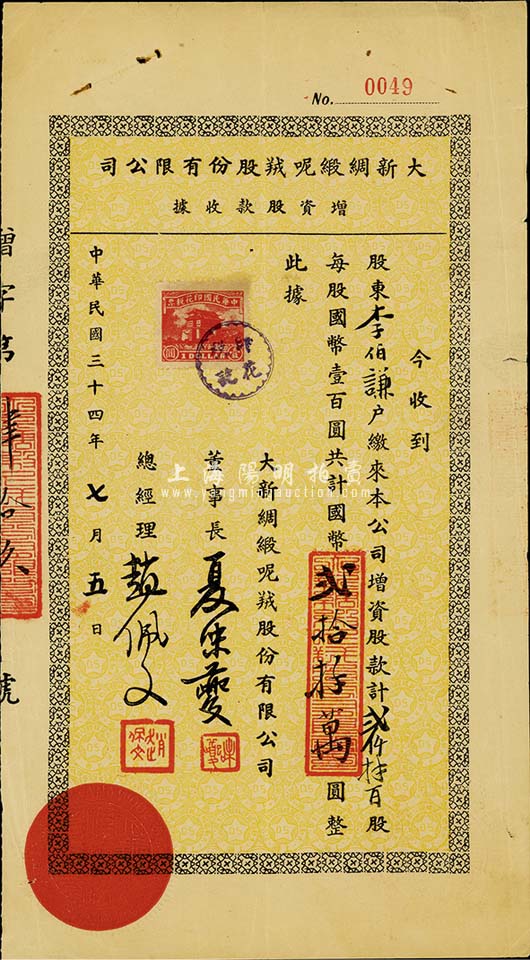 No. 0049
大新綢緞呢羢股份有限公司
增資股款收據
今收到
股東李伯謙户繳來本公司增資股款計貳仟伍百股
每股國幣壹百圓共計國幣貳拾伍萬圓整
此據
中華民國印花稅票
1 DOLLAR
印花
訖
大新綢緞呢羢股份有限公司
董事長 夏 夔
總經理 趙佩文
中華民國三十四年七月五日
增字第肆拾玖號
上海陽明拍賣
www.yangmingauction.com